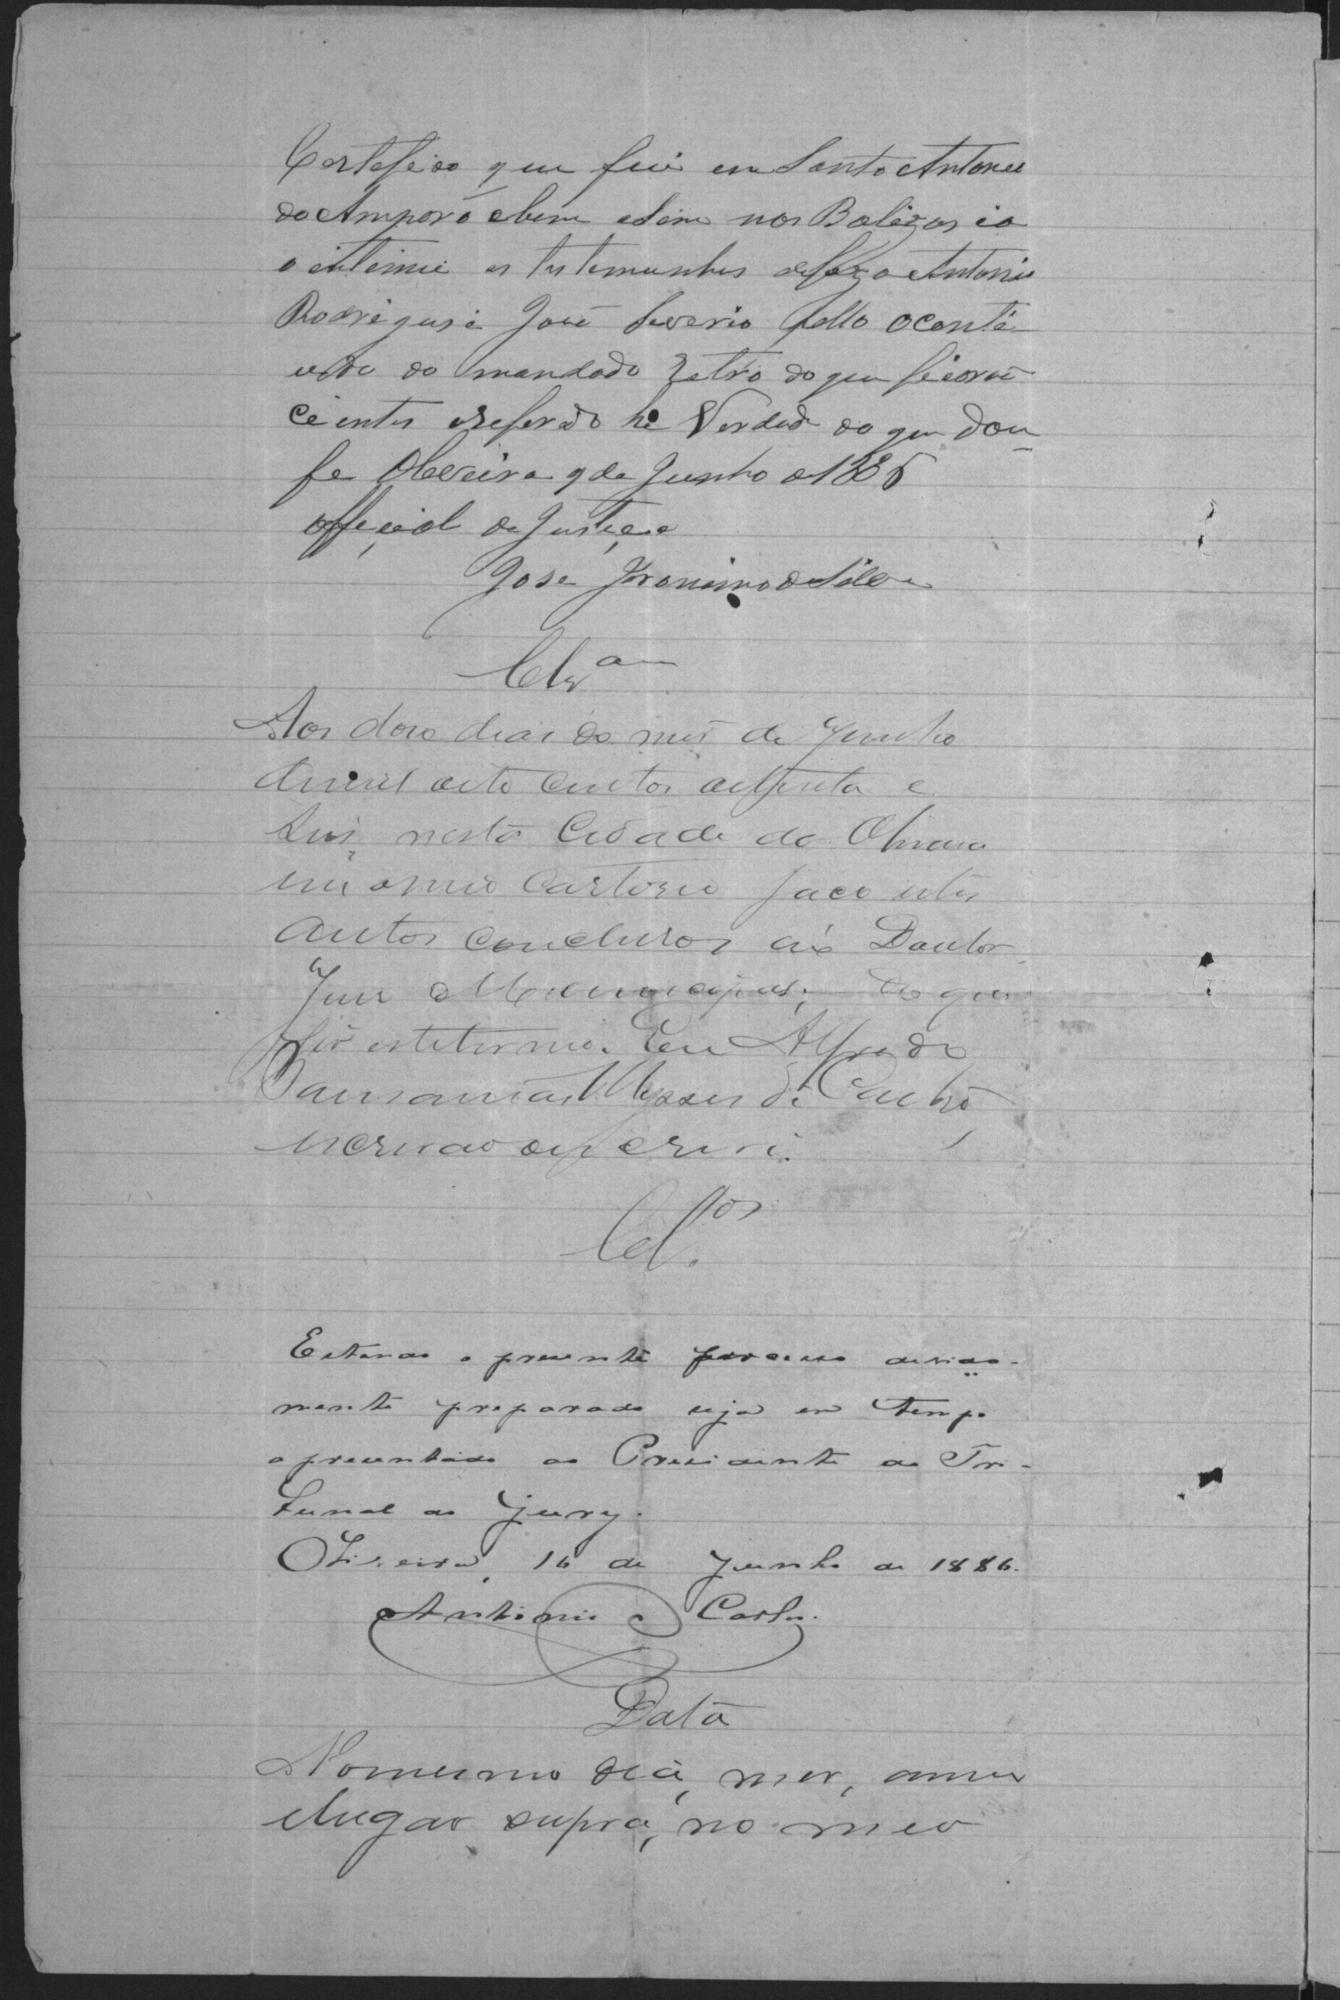 Certefico que fui em Santo Antonio
do Amparo e bem asim nos Belezas e a
o intimei as testemunhas Antonio
Rodrigues e José Severio Tello o conte
udo do mandado Retro do que ficarão
cientes o referido he Verdade do que dou
fe Oliveira 9 de Junho de 1886
official de Justiça
Jose Jeronimo da Silva
Clsam
Aos doze dias do mes de Junho
de mil oito centos oitenta e
seis nesta Cidade da Oliveira
em o meu Cartorio faço estes
autos conclusos ao Doutor
Juiz Municipal; do que
fiz este termo. Eu Alfredo
Pausanias Ulysses de Castro
escrivão o escrevi.
Cl.os
Estando o presente processo devida-
mente preparado seja em tempo
apresentado ao Presidente do Tri-
bunal do Jury.
Oliveira, 16 de Junho de 1886.
Antonio Carlos.
Data
No mesmo dia, mez, anno
e lugar supra, no meu